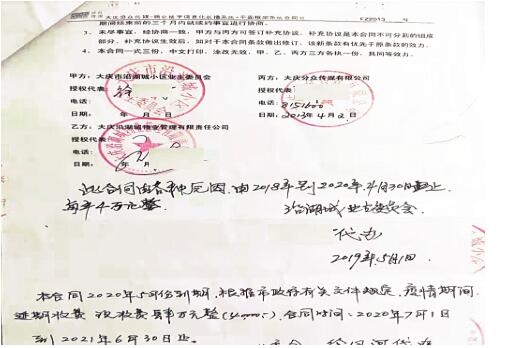 大庆分众传媒
期间结束前的三个月内就续约事宜进行协商。
3、未尽事宜，经协商一致，甲方与丙方可签订补充协议，补充协议是本合同不可分割的组成
部分，补充协议生效后，如对于本合同条款做出修订，该新条款有优先于原条款的效力。
4、本合同一式三份，中文打印，涂改无效，甲、乙、丙三方各执一份，具同等效力。
甲方：大庆市沿湖城小区业主委员会
丙方：大庆分众传媒有限公司
授权代表：徐
授权代表：
电话：
电话：8151600
日期： 年 月
日期：2013年4月2日
乙方：大庆沿湖城物业管理有限责任公司
授权代表：
电话：
日期： 年 月 日
此合同因各种原因，由2018年到2020年4月30日截止
每年4万元整
沿湖城业主委员会
代办
2019年5月1日
本合同2020年5月份到期，根据市政府有关文件规定，疫情期间
延期收费 次收费肆万元整(40000).合同时间：2020年7月1日
到2021年6月30日止。